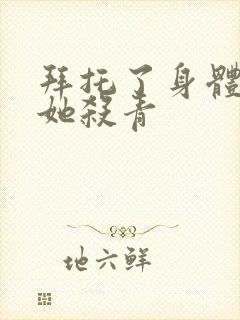 拜托了身體
她殺青
地六鮮